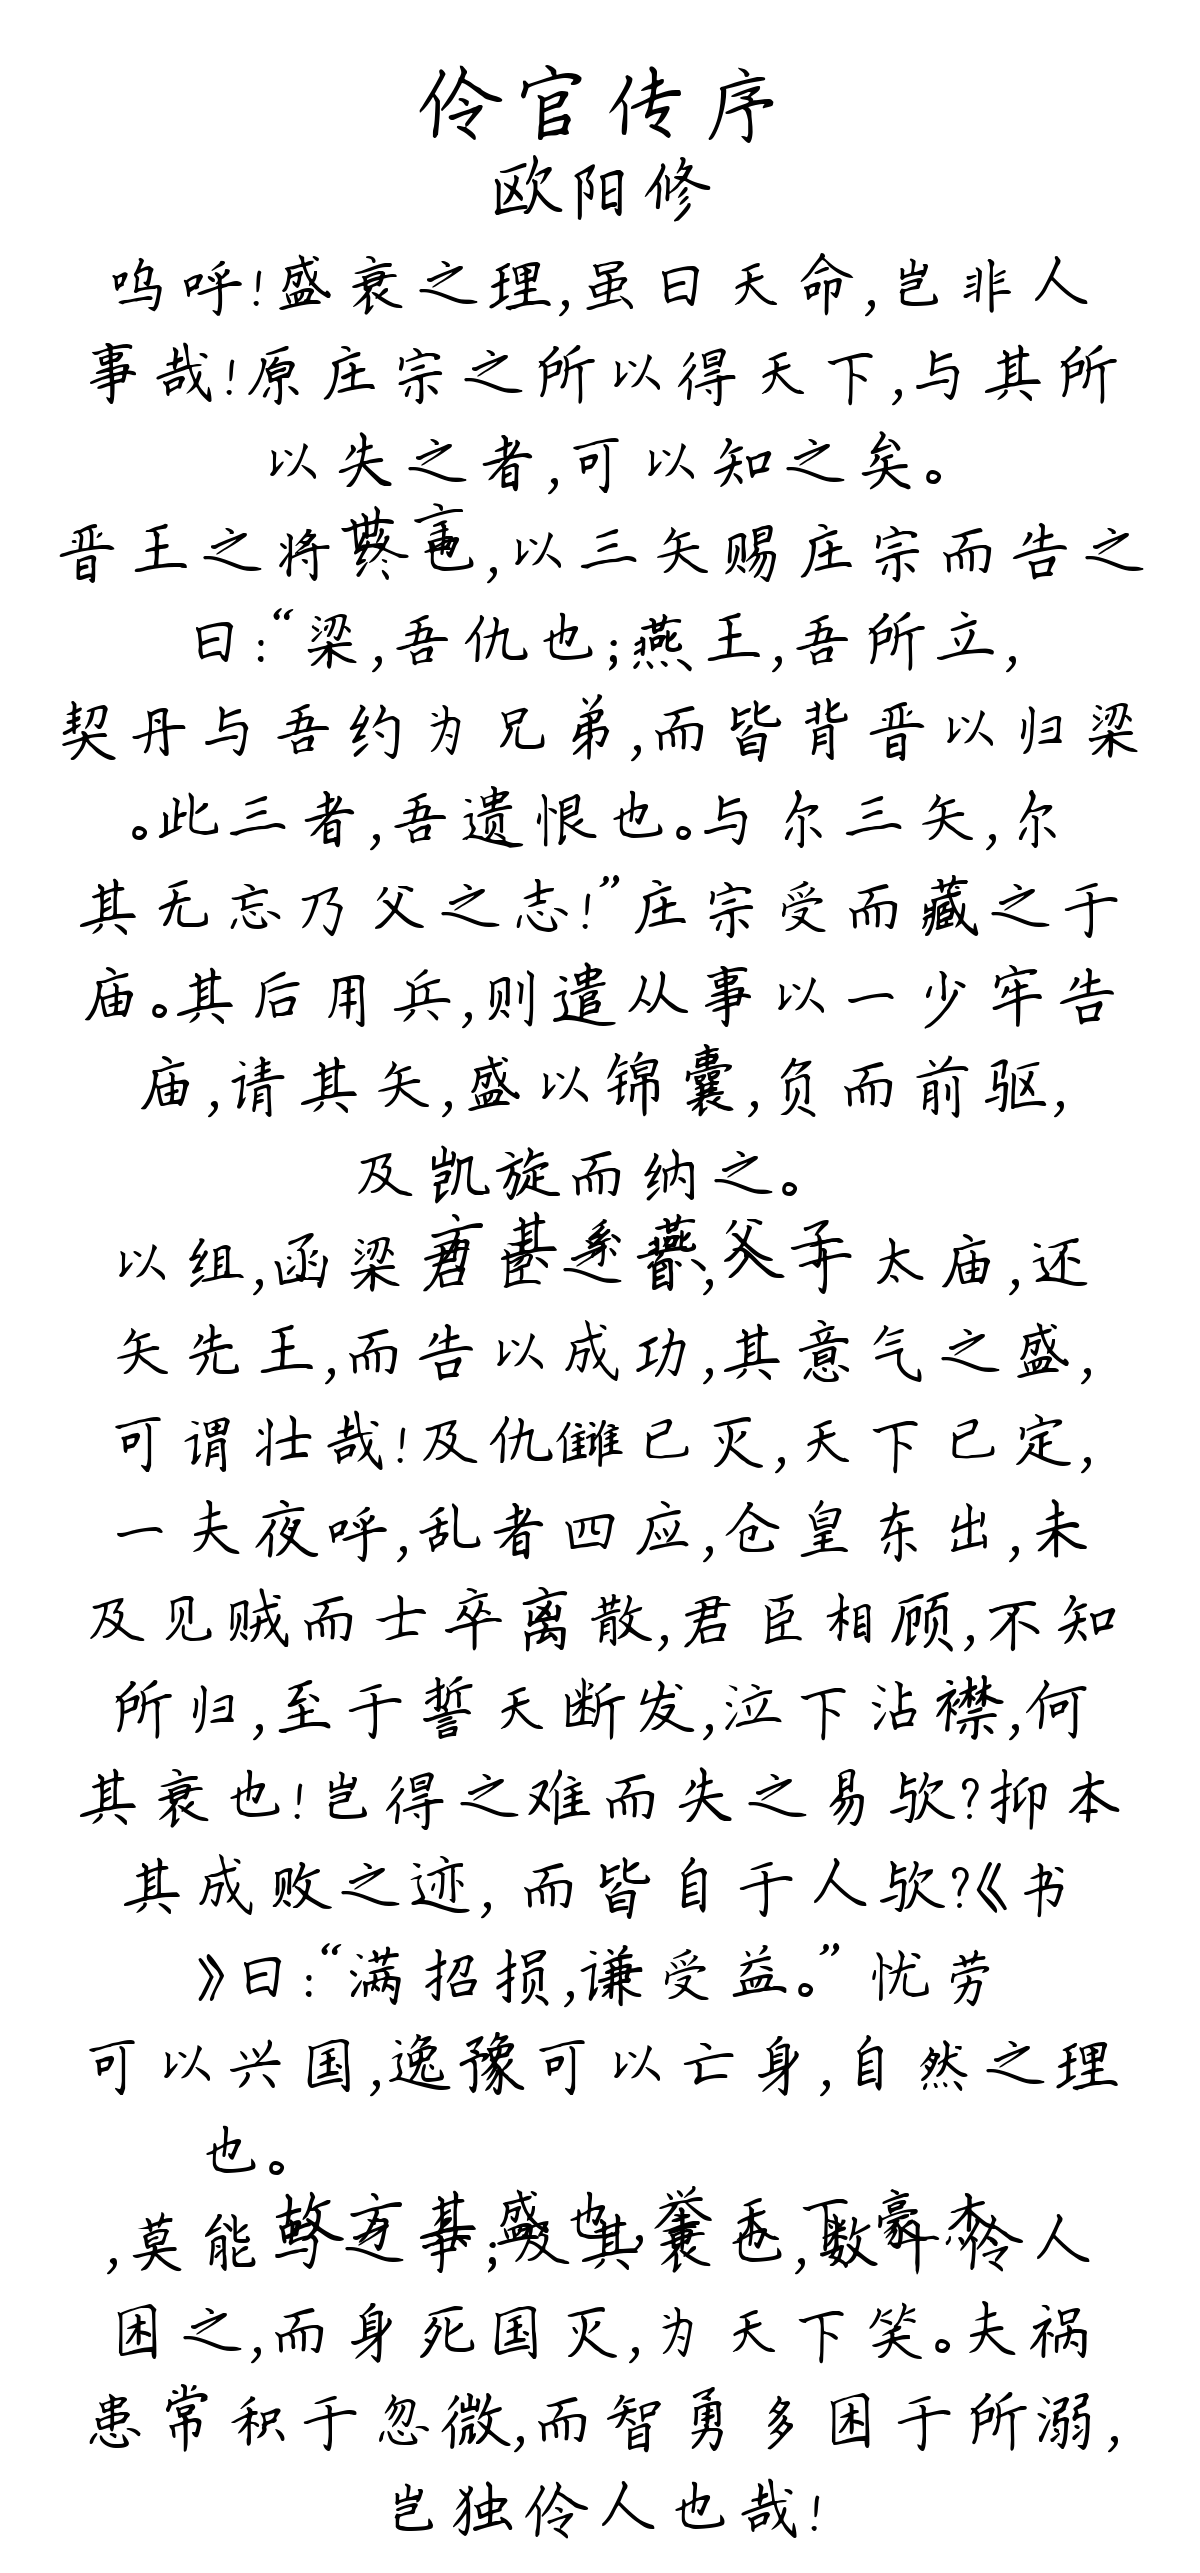 伶官传序
欧阳修
呜呼!盛衰之理,虽曰天命,岂非人
事哉!原庄宗之所以得天下,与其所
以失之者,可以知之矣。
世言
晋王之将终也,以三矢赐庄宗而告之
曰:“梁,吾仇也;燕王,吾所立,
契丹与吾约为兄弟,而皆背晋以归梁
。此三者,吾遗恨也。与尔三矢,尔
其无忘乃父之志!”庄宗受而藏之于
庙。其后用兵,则遣从事以一少牢告
庙,请其矢,盛以锦囊,负而前驱,
及凯旋而纳之。
方其系燕父子
以组,函梁君臣之首,入于太庙,还
矢先王,而告以成功,其意气之盛,
可谓壮哉!及仇雠已灭,天下已定,
一夫夜呼,乱者四应,仓皇东出,未
及见贼而士卒离散,君臣相顾,不知
所归,至于誓天断发,泣下沾襟,何
其衰也!岂得之难而失之易欤?抑本
其成败之迹, 而皆自于人欤?《书
》曰:“满招损,谦受益。” 忧劳
可以兴国,逸豫可以亡身,自然之理
也。
故方其盛也,举天下豪杰
,莫能与之争;及其衰也,数十伶人
困之,而身死国灭,为天下笑。夫祸
患常积于忽微,而智勇多困于所溺,
岂独伶人也哉!